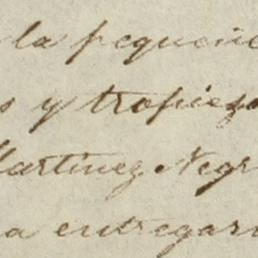 la pequeñe
s y tropieza
Martinez Negr
a entregar